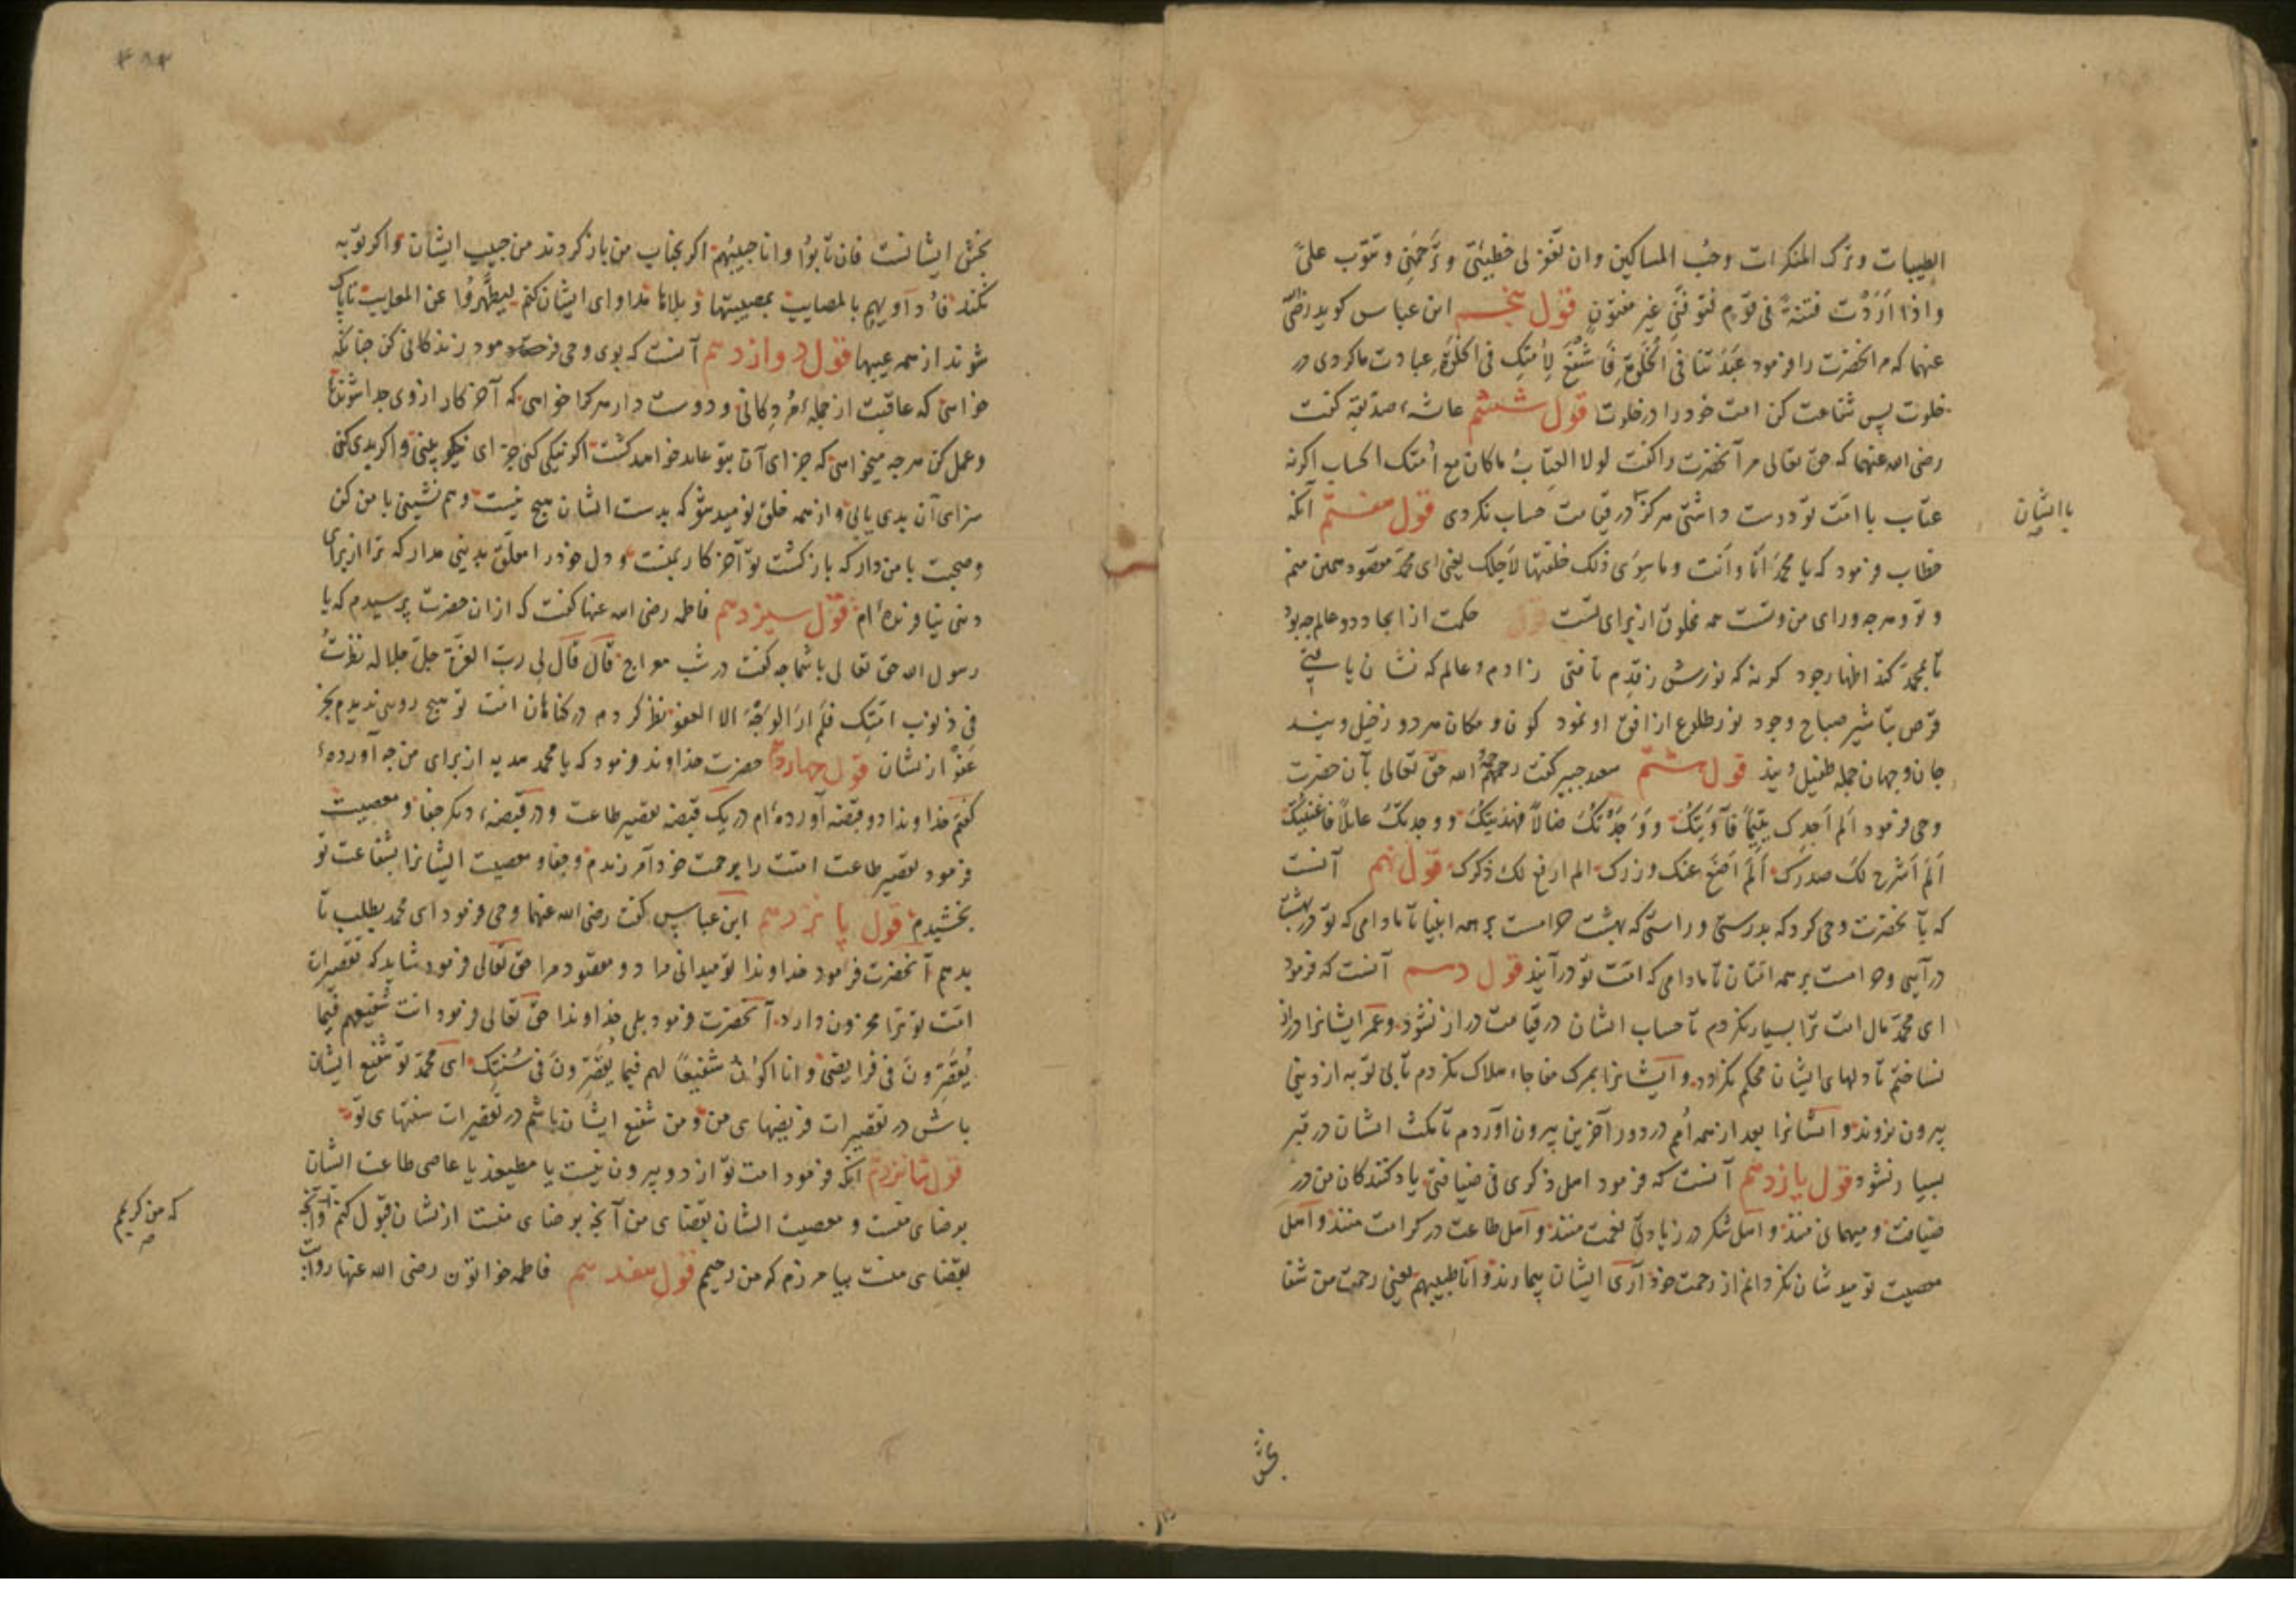 الطیبات و ترک المنکرات وحُب المساکین وان تغفر لی خطیئتی و ترحمنی و تتوب علیّ
واذا اَرَدْتَ فتنةً فی قَوم فتوفّنی غیر مفتونٍ قول پنجم ابن عباس کوید رضی الله
عنهما که مر آنحضرت را فرمود عَبَدْتَنا فی الخَلْوَةِ فَاشْفَعْ لِأُمّتِک فی الخَلْوَةِ عبادت ما کردی در
خلوت پس شفاعت کن امت خود را در خلوت قول ششم عائشهٔ صدیقه کفت
رضی الله عنهما که حق تعالی مر آنحضرت را کفت لولا العِتابُ ما کان مع اُمتک الحساب اکر نه
عتاب با امّت تو دوست داشتی هرکز در قیامت حساب نکردی قول هفتم آنکه
با ایشان
خطاب فرمود که یا محمد اَنا و اَنت و ما سِوَی ذلک خلقتها لاَجلک یعنی ای محمد مقصود همین منم
و تو و هرچه ورای من و تست همه مخلوق از برای تست قول حکمت از ایجاد دو عالم چه بود
تا محمد کند اظهار وجود کونه که نورش ز قِدم تافتی ز ادم و عالم که نشان یافتی
قرص تباشیر صباح وجود نور طلوع از افق او نمود کون و مکان هر دو ز خیل ویند
جان و جهان جمله طفیل ویند قول هشتم سعد جبیر کفت رحمهم الله حق تعالی بآن حضرت
وحی فرمود اَلم اَجدک یتیمًا فآوَیتک و وَجَدْتک ضالاً فهدَیتک و وجدتک عایلاً فاَغنیتک
اَلَم اَشرح لکَ صدرک اَلَم اَضَع عنک وزرک الم ارفع لک ذکرک قول نهم آنست
که بآنحضرت وحی کرد که بدرستی و راستی که بهشت حرامست بر همه انبیا تا مادامی که تو در بهشت
در آیی و حرامست بر همه امتان تا مادامی که امّت تو در آیند قول دهم آنست که فرمود
ای محمد مال امت ترا بسیار نکردم تا حساب ایشان در قیامت دراز نشود و عمر ایشانرا دراز
نساختم تا دلهای ایشان محکم نکردد و ایشانرا بمرک مفاجاء هلاک نکردم تا بی توبه از دنیی
بیرون نروند و ایشانرا بعد از همه اُمم در دور آخرین بیرون آوردم تا مکث ایشان در قبر
بسیار نشود قول یازدهم آنست که فرمود اهل ذکری فی ضیافتی یاد کنندکان من در
ضیافت و میهمانی منند و اهل شکر در زیادتی نعمت منند و اهل طاعت در کرامت منند و اهل
معصیت نومیدشان نکردانم از رحمت خود آری ایشان بیمارند و اَنا طبیبهم یعنی رحمت من شفا
بخش
بخش ایشانست فان تابوُا و انا حبیبُهم اکر بجناب من باز کردند من حبیب ایشان و اکر توبه
نکنند فاُداویهم بالمصایب بمصیبتها و بلاها مداوای ایشان کنم لیطهّروُا عن المعایب تا پاک
شوند از همه عیبها قول دوازدهم آنست که بوی وحی فرمود زندکانی کن چنانکه
خواهی که عاقبت از جملهٔ مُردِکانی و دوست دار هرکرا خواهی که آخر کار از وی جدا شونده
و عمل کن هرچه میخواهی که جزای آن بتو عاید خواهد کشت اکر نیکی کنی جزای نیکو بینی و اکر بدی کنی
سزای آن بدی یابی و از همه خلق نومید شو که بدست ایشان هیچ نیست و هم نشینی با من کن
و صحبت با من دار که بازکشت تو آخر کار بمنست و دل خود را معلّق بدنیی مدار که ترا از برای
دنیی نیافریده‌ام قول سیزدهم فاطمه رضی الله عنها کفت که از ان حضرت پرسیدم که یا
رسول الله حق تعالی با شما چه کفت در شب معراج قالَ قالَ لی ربّ العزّة جلّ جلاله نظرتُ
فی ذنوب امّتِک فلَم ارَ الوَجْهَ الا العفو نظر کردم در کناهان امّت تو هیچ رویی ندیدم بجز
عَفو از نشان قول چهاردهم حضرت خداوند فرمود که یا محمد هدیه از برای من چه آوردهٔ
کفتم خداوندا دو قبضه آورده‌ام در یک قبضه تقصیر طاعت و در قبضهٔ دیکر جفا و معصیت
فرمود تقصیر طاعت امتت را برحمت خود آمرزیدم و جفا و معصیت ایشانرا بشفاعت تو
بخشیدم قول پانزدهم ابن عباس کفت رضی الله عنهما وحی فرمود ای محمد بطلب تا
بدهم آنحضرت فرمود خداوندا تو میدانی مراد و مقصود مرا حق تعالی فرمود شاید که تقصیرات
امّت تو ترا محزون دارد آنحضرت فرمود بلی خداوندا حق تعالی فرمود انت شفیعهم فیما
یُقَصِّرونَ فی فرایضی و انا اکوُن شفیعًا لهم فیما یُقَصِّرونَ فی سُنّتِک ای محمد تو شفیع ایشان
باش در تقصیرات فریضهای من و من شفیع ایشان باشم در تقصیرات سنتهای تو
قول شانزدهم آنکه فرمود امت تو از دو بیرون نیست یا مطیعند یا عاصی طاعت ایشان
برضای منست و معصیت ایشان بقضای من آنچه برضای منست از نشان قبول کنم و آنچه
که من کریم
بقضای منست بیامرزم که من رحیم قول هفدهم فاطمه خواتون رضی الله عنها روایت